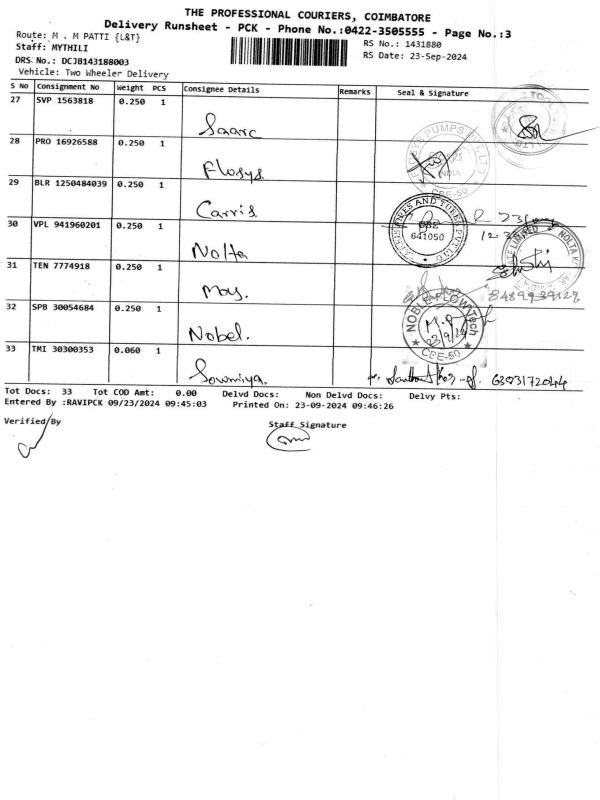 THE PROFESSIONAL COURIERS, COIMBATORE
Delivery Runsheet - PCK - Phone No.:0422-3505555 - Page No.:3
Route: M . M PATTI {L&T}
RS No.: 1431880
Staff: MYTHILI
RS Date: 23-Sep-2024
DRS No.: DCJB143188003
Vehicle: Two Wheeler Delivery
S No Consignment No Weight PCS Consignee Details Remarks Seal & Signature
27 SVP 1563818 0.250 1
Saarc
28 PRO 16926588 0.250 1
Flosys
29 BLR 1250484039 0.250 1
Carris
30 VPL 941960201 0.250 1
641050
Nolta
31 TEN 7774918 0.250 1
May.
8489939129
32 SPB 30054684 0.250 1
Nobel.
NOBLE FLOW Tech
CBE-50
33 TMI 30300353 0.060 1
Sowmiya.
6303172044
Tot Docs: 33 Tot COD Amt: 0.00 Delvd Docs: Non Delvd Docs: Delvy Pts:
Entered By :RAVIPCK 09/23/2024 09:45:03 Printed On: 23-09-2024 09:46:26
Verified By Staff Signature